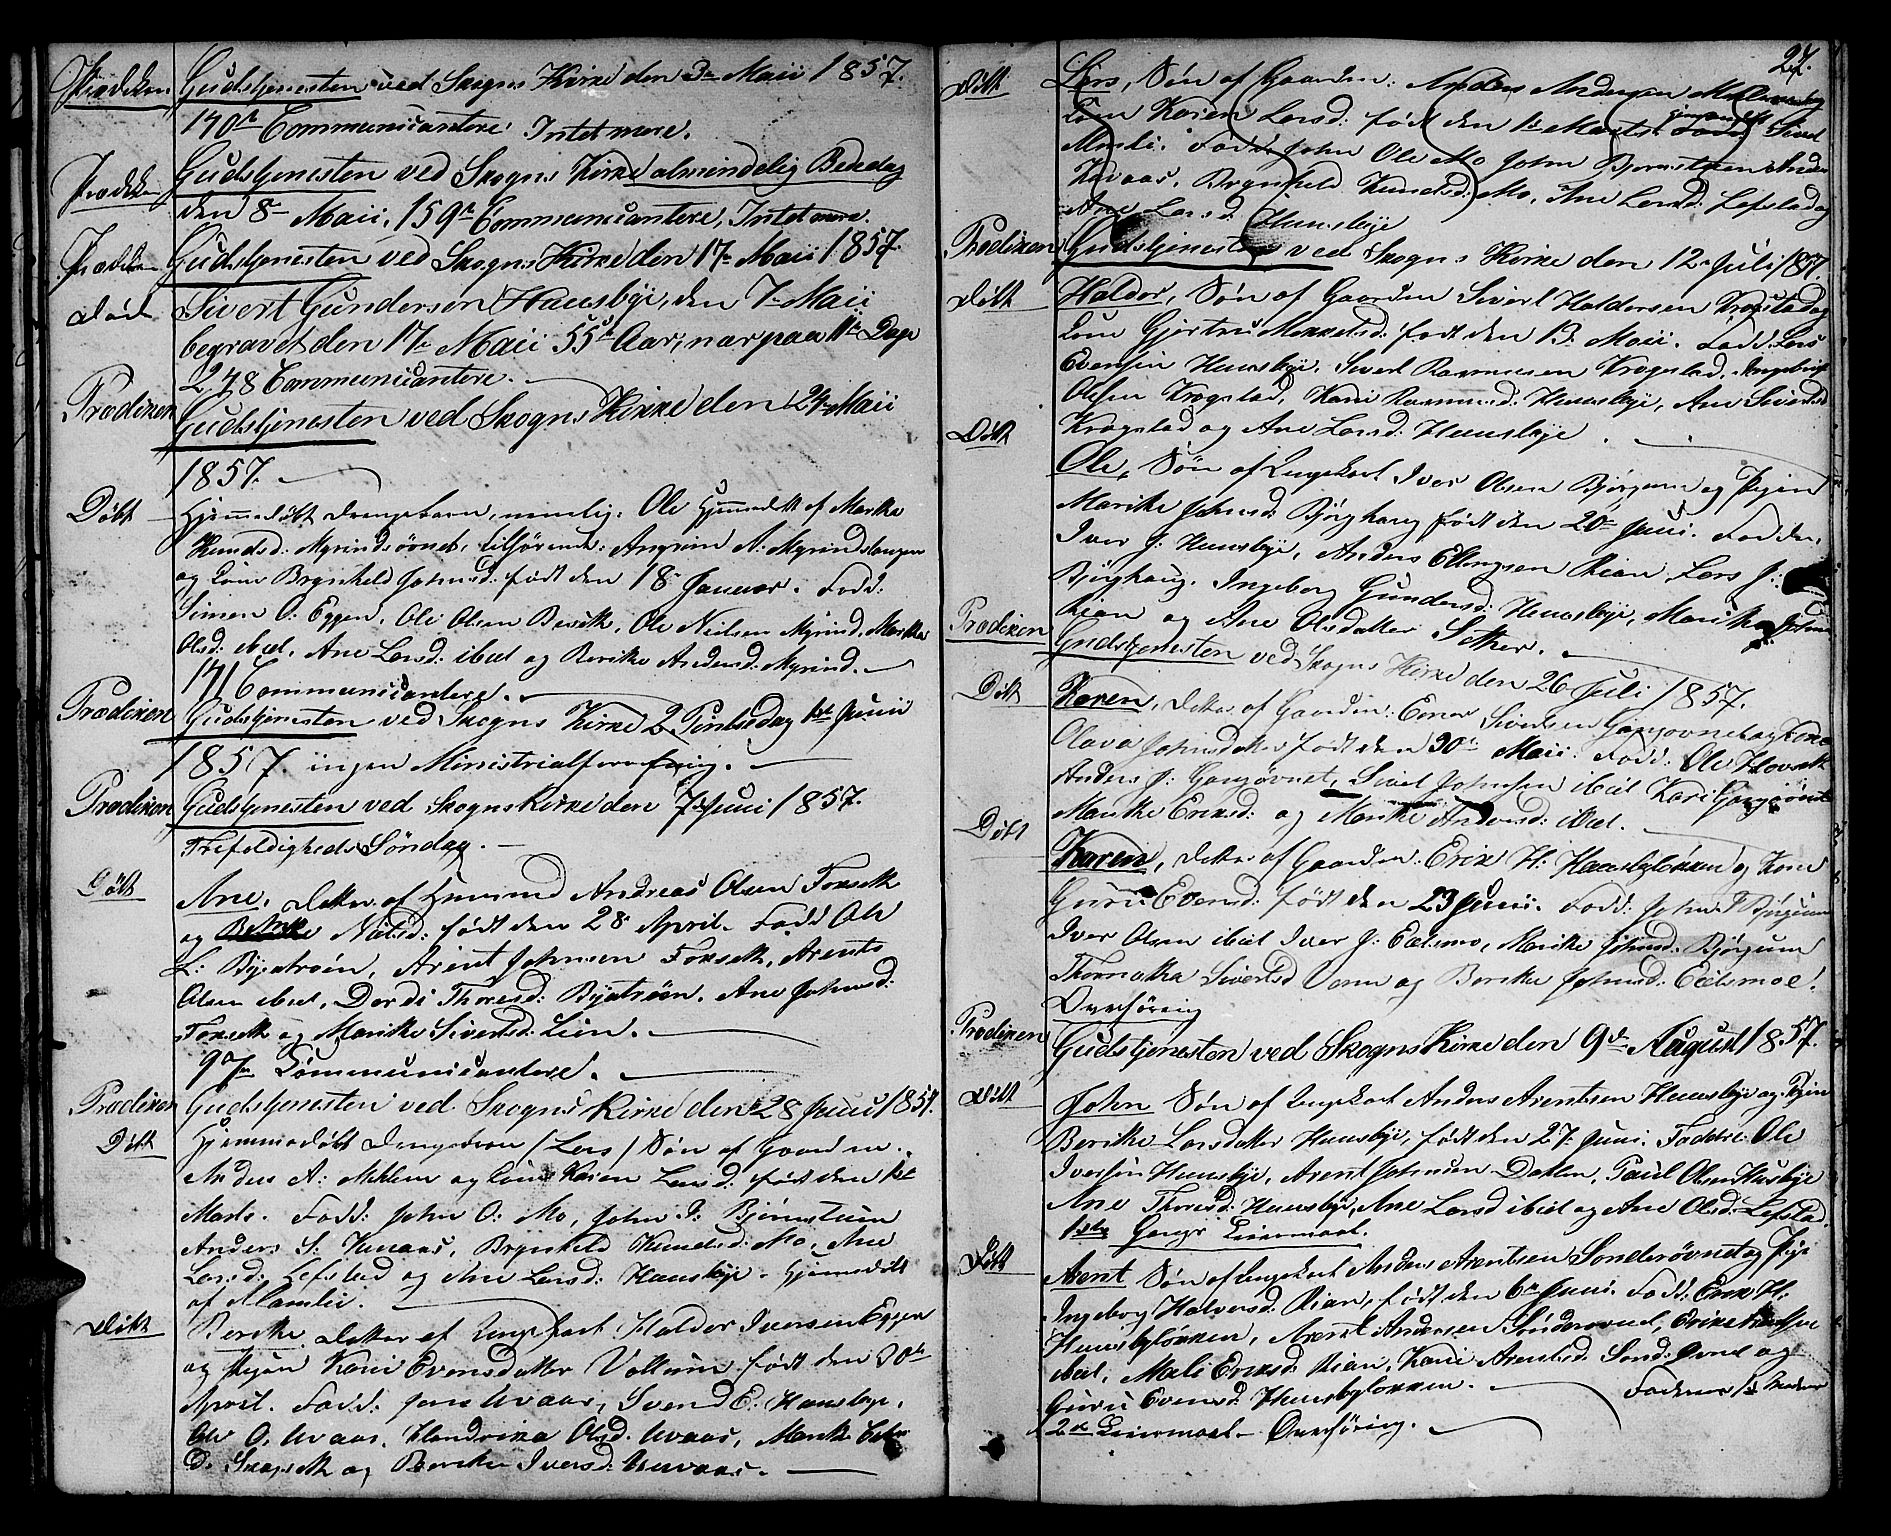 Prædiken Gudstjenesten ved Skogns Kirke den 3die Maii 1857.
170de Communicantere. Intet mere.
Prædiken Gudstjenesten ved Skogns Kirke almindelig Bededag
den 8de Maii, 159de Communicantere, Intet mere.
Prædiken Gudstjenesten ved Skogns Kirke den 17de Maii 1857.
Død Sivert Gundersen Hausbye, den 7de Maii
begravet den 17de Maii 55 Aar, nær paa 11te Dage
278 Communicantere.
Prædiken Gudstjenesten ved Skogns Kirke den 24de Maii
1857.
Døbt Hjemmedøbt Drengebarn, nemlig: Ole Hjemmedøbt af Marke
Knudsd: Myrindsøvnet, tilhørende: A: Myrindslangen
og Kone Brynhild Johnsd: født den 18 Januar. Fadd:
Simen O: Eggen, Ole Olsen Ole Nielsen Myrind, Marke
Olsd: ibid, Ane Larsd: ibid og Berike Andersd: Myrind.
171 Communicantere.
Prædiken Gudstjenesten ved Skogns Kirke 2. Pintsedag 1ste Junii
1857. ingen Ministrialforretning.
Prædiken Gudstjenesten ved Skogns Kirke den 7de Juni 1857.
Trefoldigheds Søndag.
Døbt Ane, Datter af Huusmand Andreas Olsen Foxseth
og Berike født den 28 April. Fadd Ole
L: Byatrøen, Arent Johnsen Foxseth, Arent
Olsen ibid, Dordi Thoresd: Byatrøen, Ane Johnsd:
Foxseth og Marike Sivertsd: Lein.
90de Communicantere.
Prædiken Gudstjenesten ved Skogns Kirke den 28 Juni 1857.
Døbt Hjemmedøbt Drengebarn (Lars) Søn af Gaardm.
Anders A: og Kone Karen Larsd: født den 1ste
Marts. Fadd: John O: Mo, John J: Bjørnstuen
Anders S: Kvaas, Brynhild Knudsd: Mo, Ane
Larsd: Lefstad og Ane Larsd: Hausbye. Hjemmedøbt
af
Døbt Berike Datter af Ungekarl Haldor Iversen Eggen
og Pigen Kari Evensdatter Voltuim født den 30te
April. Fadd: Jens Uvaas, Svend E: Hausbye,
Ole O: Uvaas, Hendrikka Olsd: Uvaas, Marike
d: og Berike Iversd: Uuvaas.
27.
Døbt Lars, Søn af Gaardm: Anders Andersen
Kone Karen Larsd: født den 1ste Marts.
Fadd: John Ole Mo John Bjørnstuen Anders
Kvaas, Brynhild Knudsd: Mo, Ane Larsd: Lefstad og
Ane Larsd: Hausbye
Prædiken Gudstjenesten ved Skogns Kirke den 12te Juli 1857.
Døbt Haldor, Søn af Gaardm Sivert Haldorsen Krogstad og
Kone Gjertru Mikkelsd: født den 13de Maii. Fadd: Lars
Evensen Hausbye, Sivert Rasmusen Krogstad, Ingebrigt
Olsen Krogstad, Kari Rasmusd: Hausbye, Ane Sivertsd
Krogstad og Ane Larsd: Hausbye
Døbt Ole, Søn af Ungekarl Iver Olsen Bjørgum og Pigen
Marike Johnsd: Bjørghaug født den 20de Juni. Fadder,
Iver J: Hausbye, Anders Ellingsen Rian, Lars J:
Bjørghaug, Ingeborg Gundersd: Hausbye, Marike Johnsd
Rian og Ane Olsdatter Sether.
Prædiken Gudstjenesten ved Skogns Kirke den 26 Juli 1857.
Døbt Karen, Datter af Gaardm: Sivertsen og Kone
Olava Johnsdatter født den 30te Maii. Fadd: Ole Hovseth
Anders J: Sivert Johnsen ibid Kari
Marike Eriksd: og Marike ibid.
Døbt Karen, Datter af Gaardm: Erik H: Hausbyløkken og Kone
Guru Evensd: født den 23 Junii. Fadd: John T Bjørgum
Iver Olsen ibid Iver J: Eklemo, Marike Johnsd: Bjørgum
Sivertsd Vorm og Berike Johnsd: Eklemoe.
Overhøring
Prædiken Gudstjenesten ved Skogns Kirke den 9de August 1857.
Døbt John Søn af Ungekarl Anders Arentsen Hausbye og Pigen
Berike Larsdatter Hausbye, født den 27 Juni. Faddere Ole
Iversen Hausbye, Arent Johnsen Dahlen, Paul Olsen Husbye
Ane Thoresd: Hausbye, Ane Larsd ibid og Ane Olsd: Lefstad.
1ste Gangs Leiermaal.
Døbt Arent Søn af Ungekarl Anders Arentsen Sønderøvnet og Pige
Ingeborg Halvorsd: Rian, født den 6te Juni. Fadd: Erik H:
Hausbyløkken, Arent Andersen Sønderøvnet, Erik
ibid, Mali Eriksd: Rian, Kari Arentsd. Sønd: øvnet og
Guru Evensd: Hausbyløkken. Faderens 1ste Moderens
2det Leiermaal. Overhøring.